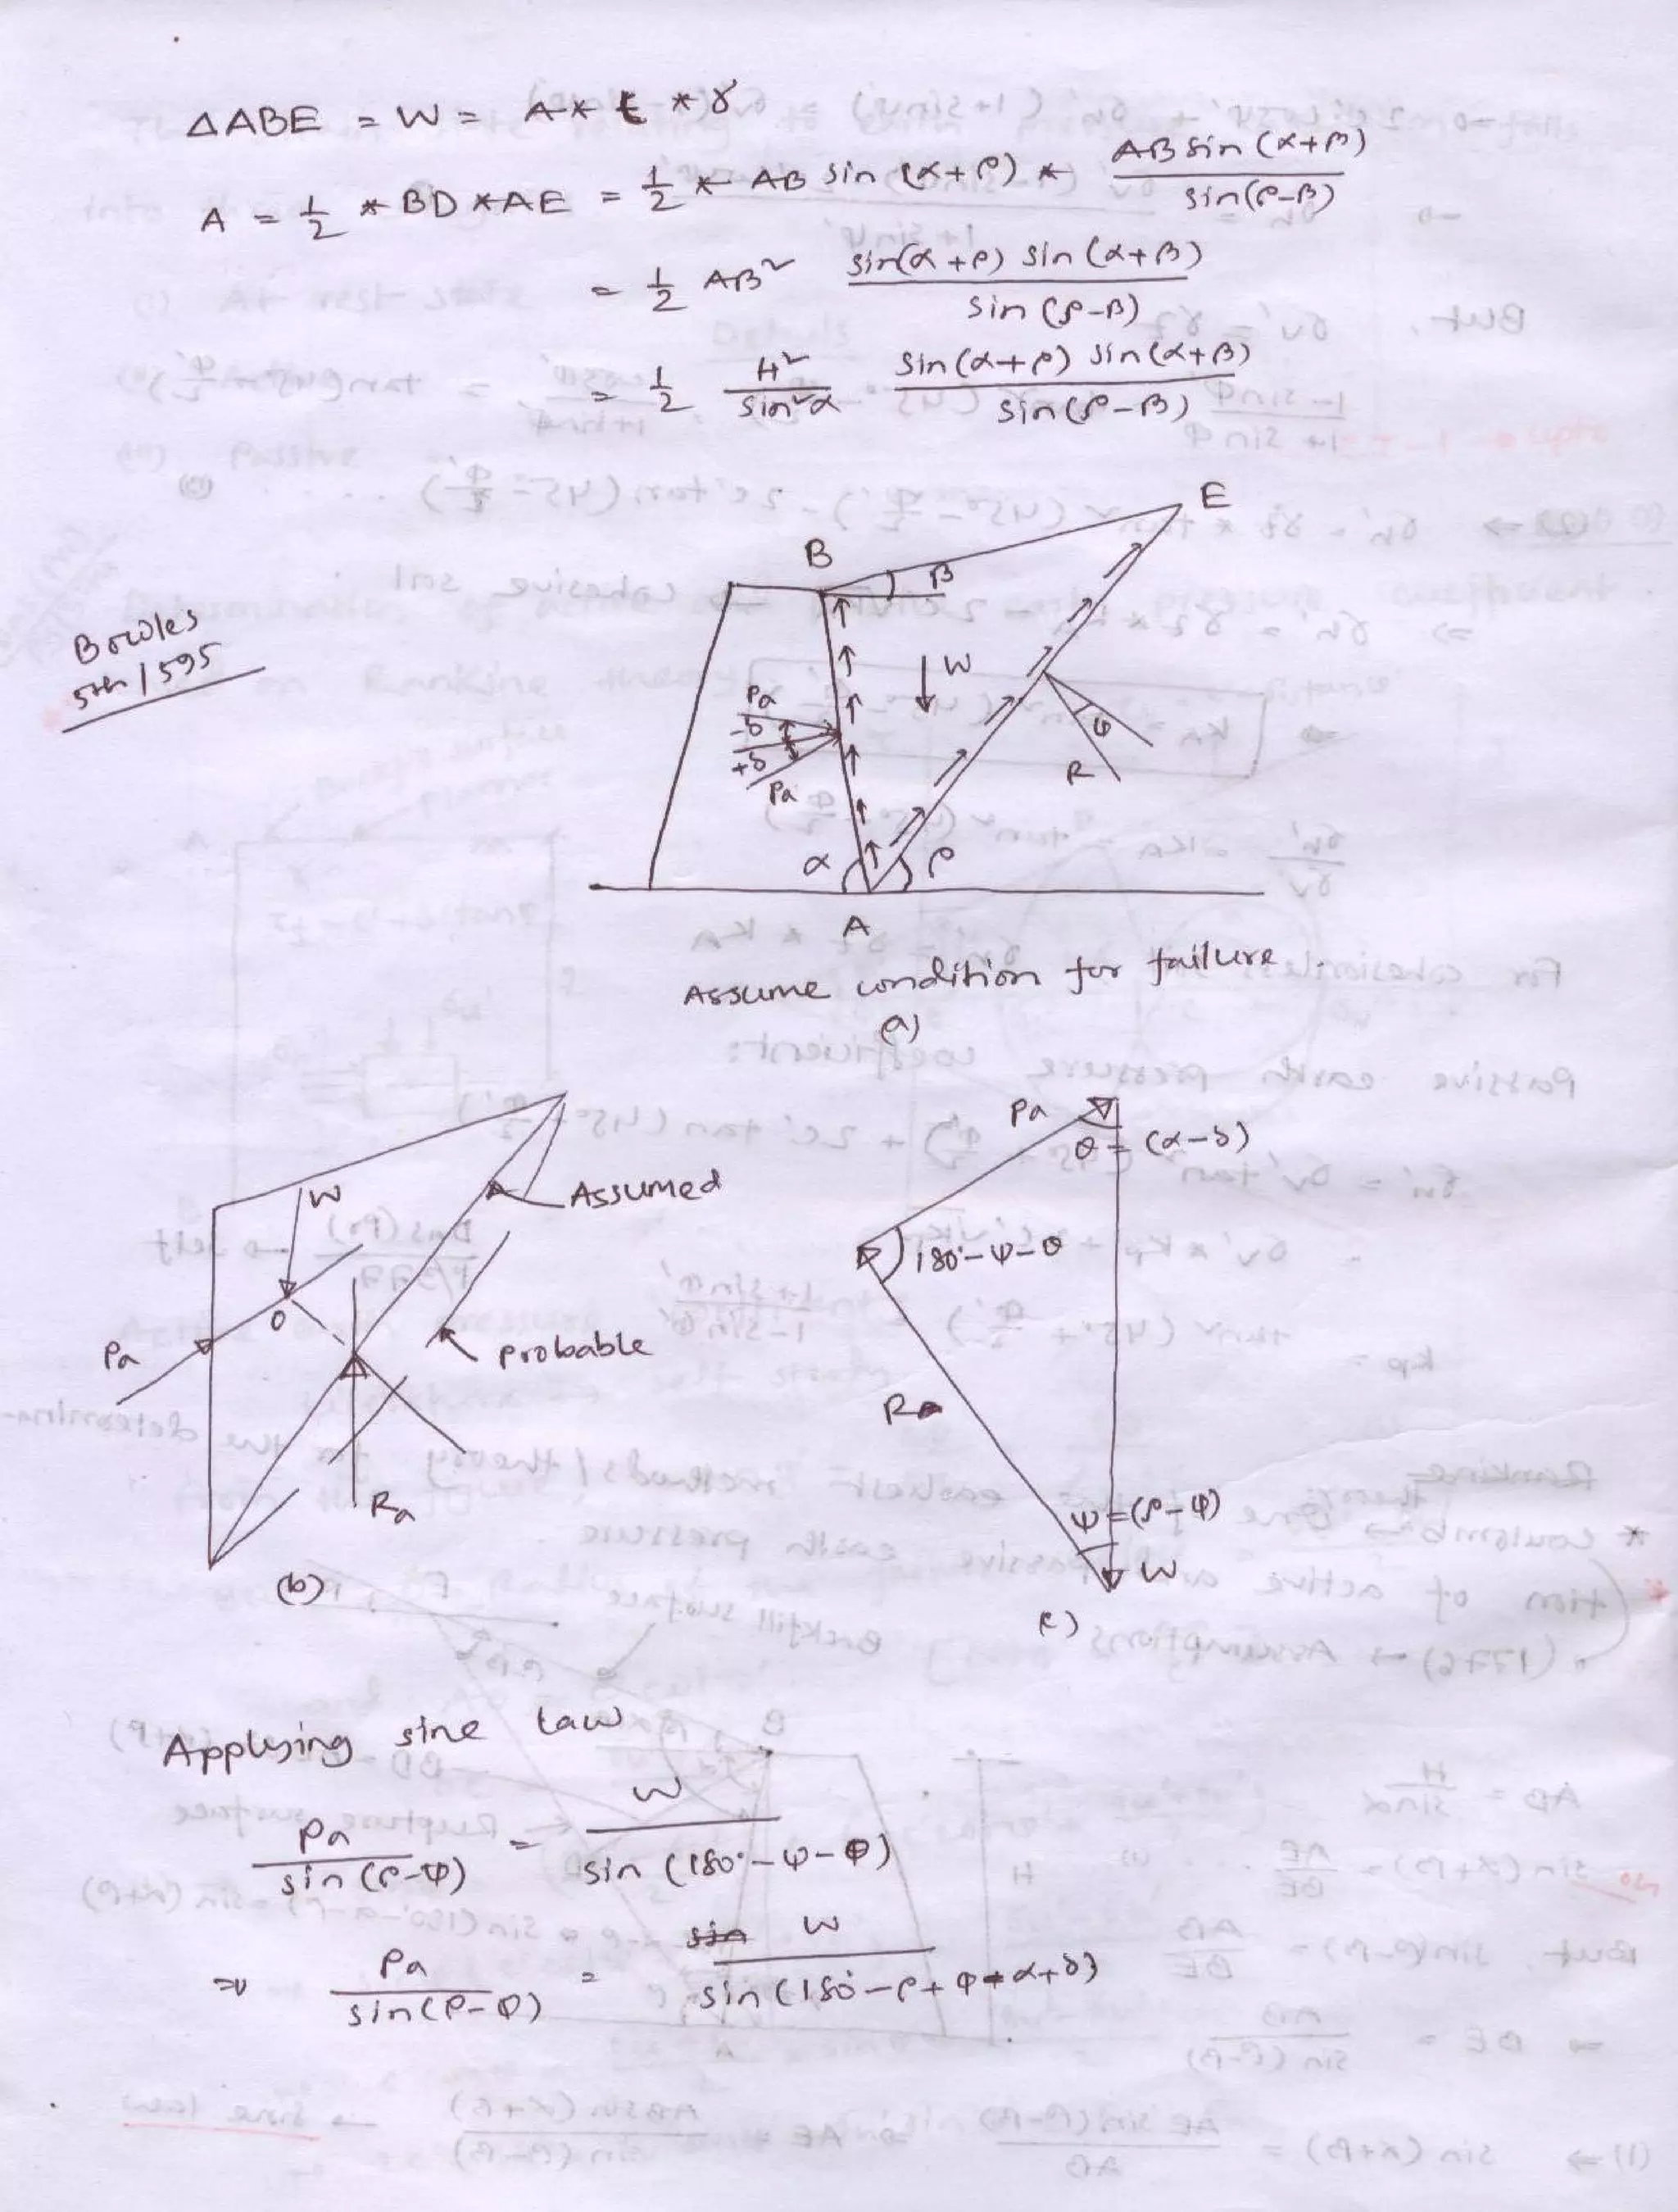 ΔABE = W = A * t * γ
A = 1/2 * BD * AE = 1/2 * AB sin (α+ρ) * AB sin (α+β) / sin(ρ-β)
= 1/2 AB² sin(α+ρ) sin (α+β) / sin (ρ-β)
= 1/2 H² / sin²α sin(α+ρ) sin(α+β) / sin(ρ-β)
E
B
β
Bowles
5th / 595
W
Pa
-δ
+δ
Pa
φ
R
α
ρ
A
Assume condition for failure.
(a)
Pa
θ = (α-δ)
W
Assumed
180°-ψ-θ
O
Pa
probable
Ra
Ra
ψ=(ρ-φ)
W
(b)
(c)
Applying sine law
Pa / sin (ρ-φ) = W / sin (180°-ψ-θ)
⇒ Pa / sin(ρ-φ) = W / sin (180°-ρ+φ+α+δ)